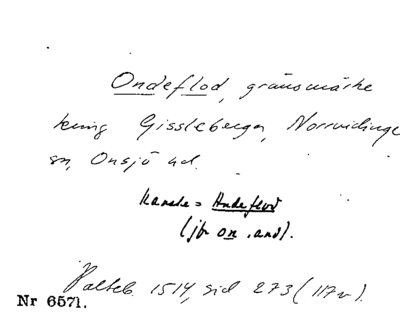 Ondeflod, gränsmärke
kring Gissleberga, Norrvidinge
sn, Onsjö hd.
kanske = Andeflod
(jfr on .and).
Palteb. 1514, sid 273 (117v).
Nr 6571.